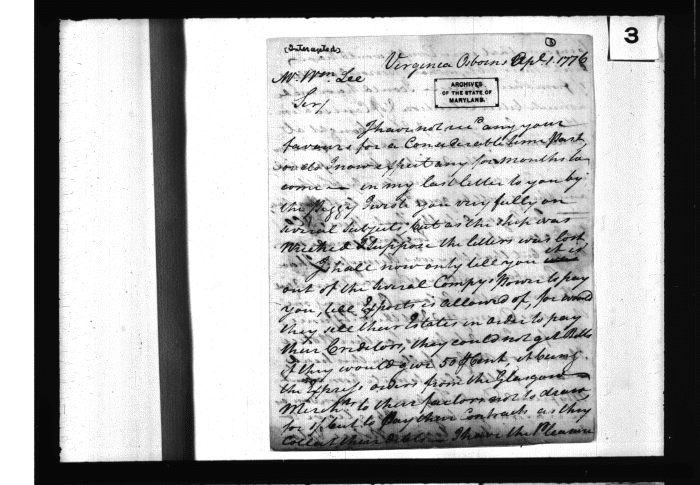 3
(Intercepted)
3
Virginia Osborns Apl. 1. 1776
Mr. Wm. Lee
ARCHIVES
OF THE STATE OF
MARYLAND.
Sir/
I have not recd any your
favours for a Considerable time Past,
nor do I now expect any for months to
come — in my last letter to you by
the Peggy I wrote you very fully on
several Subjects, but as the ship was
wrecked I suppose the letters was lost,
I shall now only tell you it is
out of the Power to pay
you, till Exports is allowed of, for would
they sell their Estates in order to pay
their Creditors, they could not get Bills
if they would give 50 ⅌ Cent it being
the express orders from the Glasgow
Merchts to their factors not to draw
for 1/ but to Pay their Contracts as they
Collect their debts — I have the Pleasure